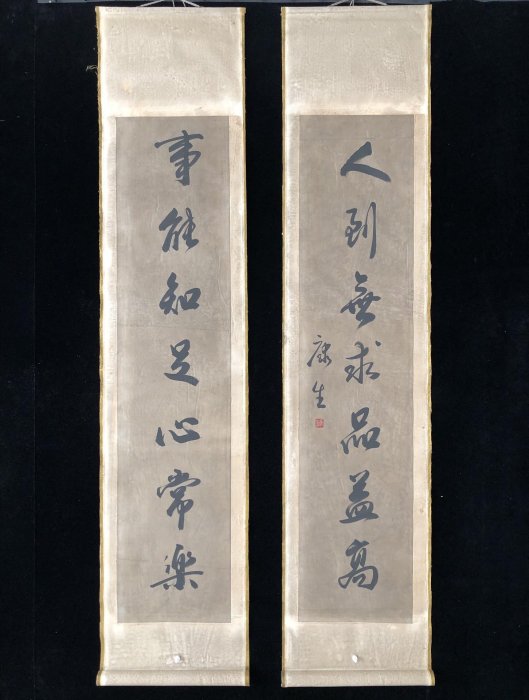 事能知足心常樂
人到無求品益高
康生